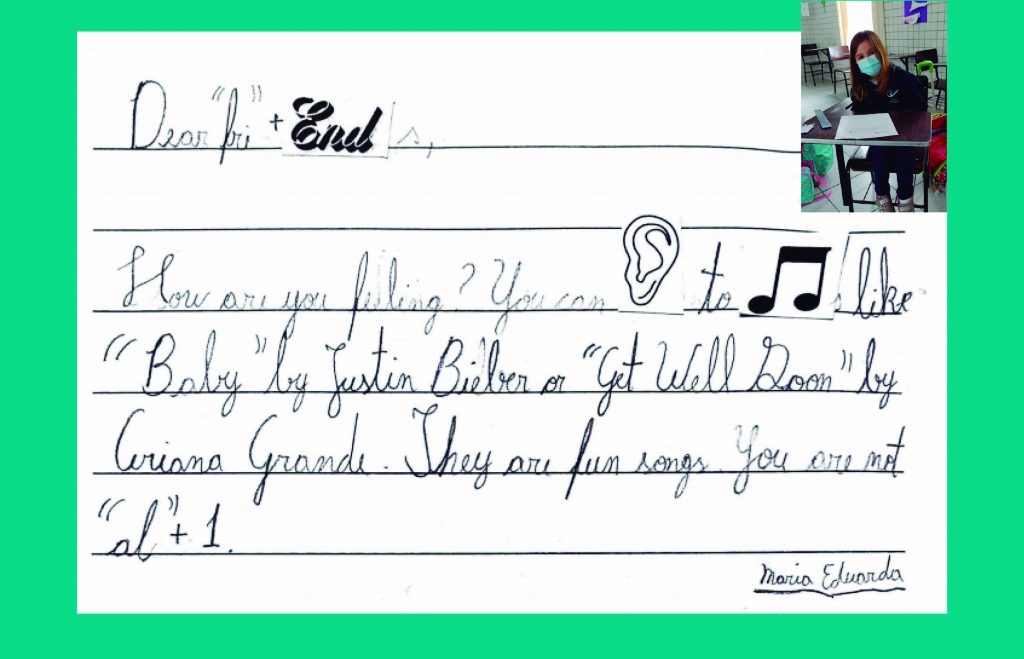 Dear "fri" + End s,
How are you feeling? You can to s like
"Baby" by Justin Bieber or "Get Well Soon" by
Ariana Grande. They are fun songs. You are not
"al" + 1.
Maria Eduarda